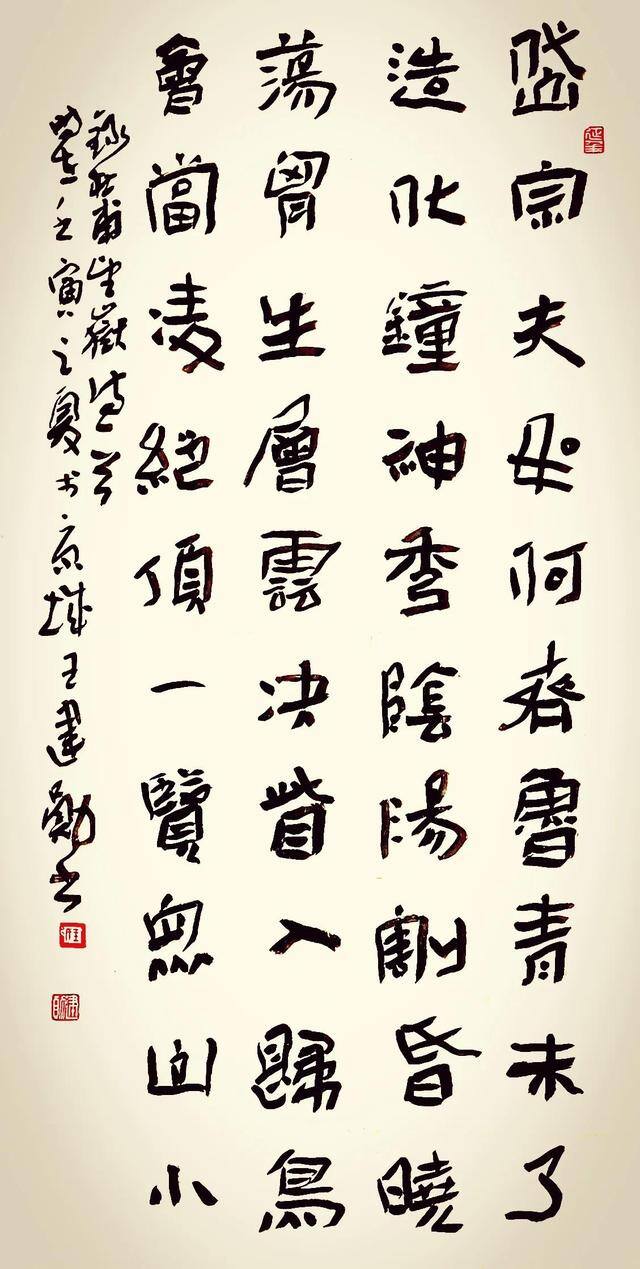 岱宗夫如何齊魯青未了
造化鐘神秀陰陽割昏曉
蕩胷生層雲决眥入歸鳥
會當凌絕頂一覽眾山小
錄杜甫望嶽詩一首
時在壬寅之夏於京城王建勛書